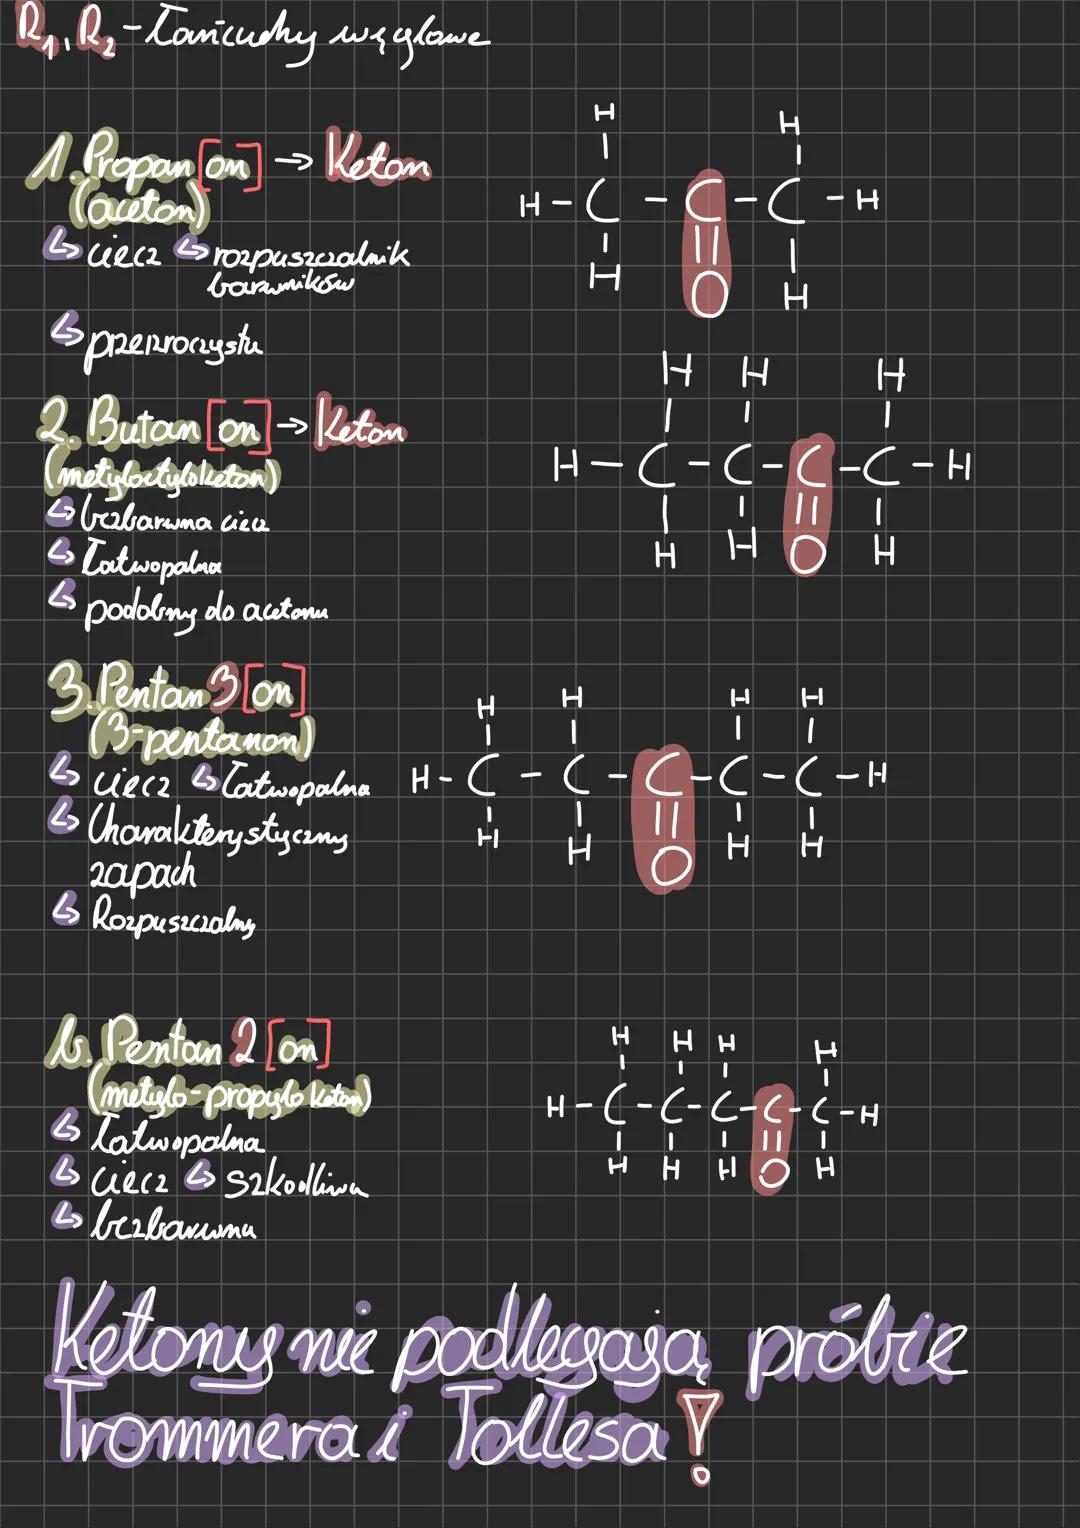 R₁, R₂ - Łańcuchy węglowe
1. Propan [on] → Keton
(aceton)
↳ ciecz ↳ rozpuszczalnik
barwników
↳ przezroczysta
H H
| |
H - C - C - C - H
| || |
H O H
2. Butan [on] → Keton
(metyloetyloketon)
↳ bezbarwna ciecz
↳ Łatwopalna
↳ podobny do acetonu
H H H
| | |
H - C - C - C - C - H
| | || |
H H O H
3. Pentan 3 [on]
(3-pentanon)
↳ ciecz ↳ Łatwopalna
↳ Charakterystyczny
zapach
↳ Rozpuszczalny
H H H H
| | | |
H - C - C - C - C - C - H
| | || | |
H H O H H
b. Pentan 2 [on]
(metylo-propylo keton)
↳ Łatwopalna
↳ ciecz ↳ szkodliwa
↳ bezbarwna
H H H H
| | | |
H - C - C - C - C - C - H
| | | || |
H H H O H
Ketony nie podlegają próbie
Trommera i Tollesa!